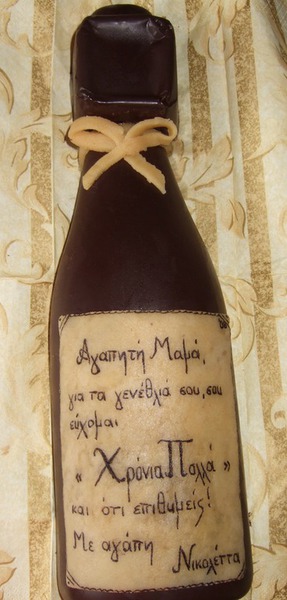 Αγαπητή Μαμά,
για τα γενέθλιά σου, σου
εύχομαι
« Χρόνια Πολλά »
και ότι επιθυμείς!
Με αγάπη
Νικολέττα